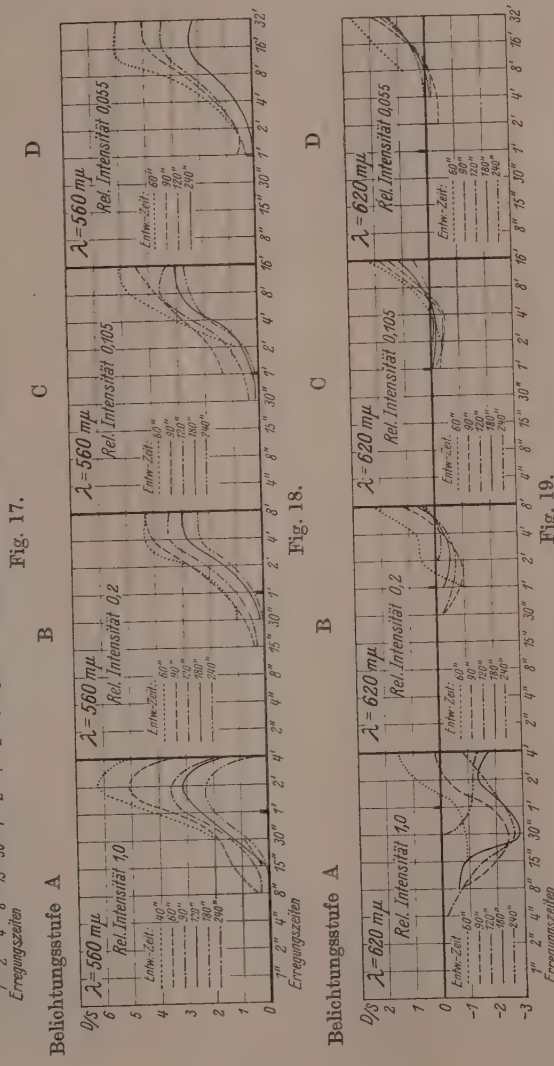 Erregungszeiten
Fig. 17.
Belichtungsstufe A B C D
D/S
6
5
4
3
2
1
0
λ=560 mμ
Rel. Intensität 1,0
Entw.-Zeit:
40"
60"
90"
120"
180"
240"
λ=560 mμ
Rel. Intensität 0,2
Entw.-Zeit:
60"
90"
120"
180"
240"
λ=560 mμ
Rel. Intensität 0,105
Entw.-Zeit:
60"
90"
120"
180"
240"
λ=560 mμ
Rel. Intensität 0,055
Entw.-Zeit:
60"
90"
120"
240"
1" 2" 4" 8" 15" 30" 1' 2' 4' 2" 4" 8" 15" 30" 1' 2' 4' 8' 4" 8" 15" 30" 1' 2' 4' 8' 16' 8" 15" 30" 1' 2' 4' 8' 16' 32'
Erregungszeiten
Fig. 18.
Belichtungsstufe A B C D
D/S
2
1
0
-1
-2
-3
λ=620 mμ
Rel. Intensität 1,0
Entw-Zeit
60"
90"
120"
180"
240"
λ=620 mμ
Rel. Intensität 0,2
Entw-Zeit:
60"
90"
120"
180"
240"
λ=620 mμ
Rel. Intensität 0,105
Entw-Zeit:
60"
90"
120"
180"
240"
λ=620 mμ
Rel. Intensität 0,055
Entw.-Zeit:
60"
90"
120"
180"
240"
1" 2" 4" 8" 15" 30" 1' 2' 4' 2" 4" 8" 15" 30" 1' 2' 4' 8' 4" 8" 15" 30" 1' 2' 4' 8' 16' 8" 15" 30" 1' 2' 4' 8' 16' 32'
Erregungszeiten
Fig. 19.